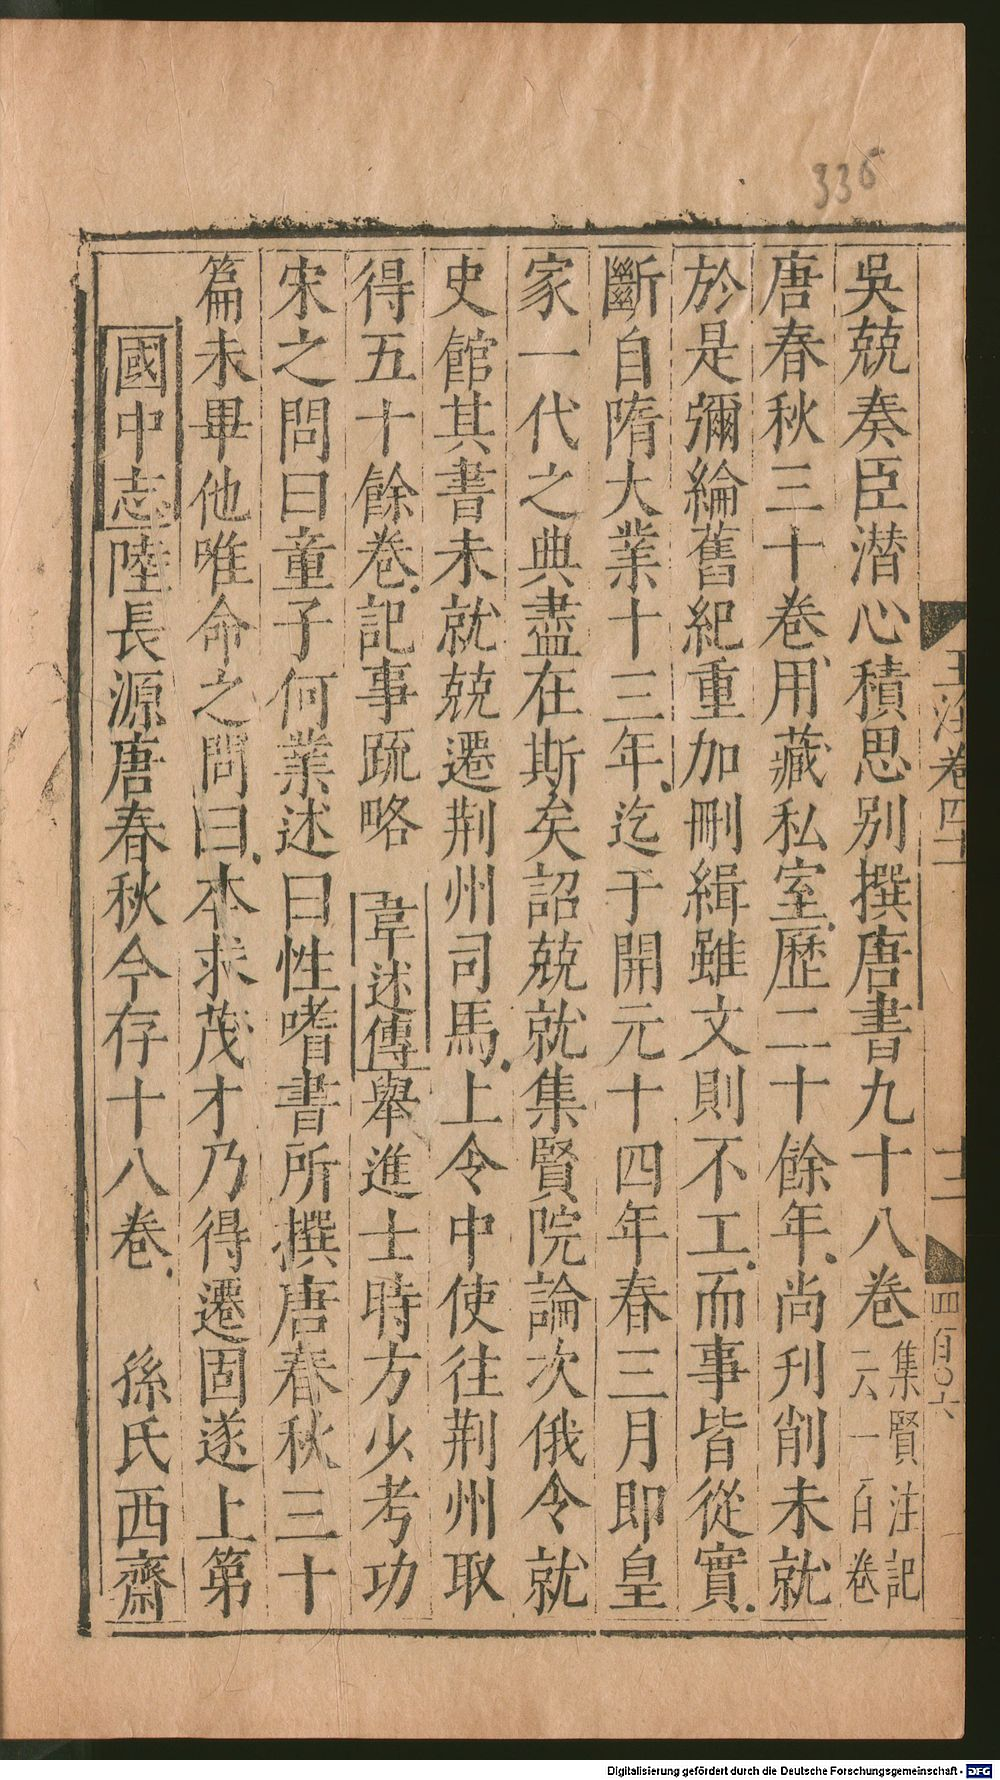 336
玉海卷四十
十二
四百〇六
吳兢奏臣潛心積思別撰唐書九十八卷集賢注記云一百卷
唐春秋三十卷用藏私室歷二十餘年尚刋削未就
於是彌綸舊紀重加刪緝雖文則不工而事皆從實
斷自隋大業十三年迄于開元十四年春三月即皇
家一代之典盡在斯矣詔兢就集賢院論次俄令就
史館其書未就兢遷荆州司馬上令中使往荆州取
得五十餘卷記事疏略　韋述傳舉進士時方少考功
宋之問曰童子何業述曰性嗜書所撰唐春秋三十
篇未畢他唯命之問曰本求茂才乃得遷固遂上第
國中志陸長源唐春秋今存十八卷　孫氏西齋
Digitalisierung gefördert durch die Deutsche Forschungsgemeinschaft - DFG